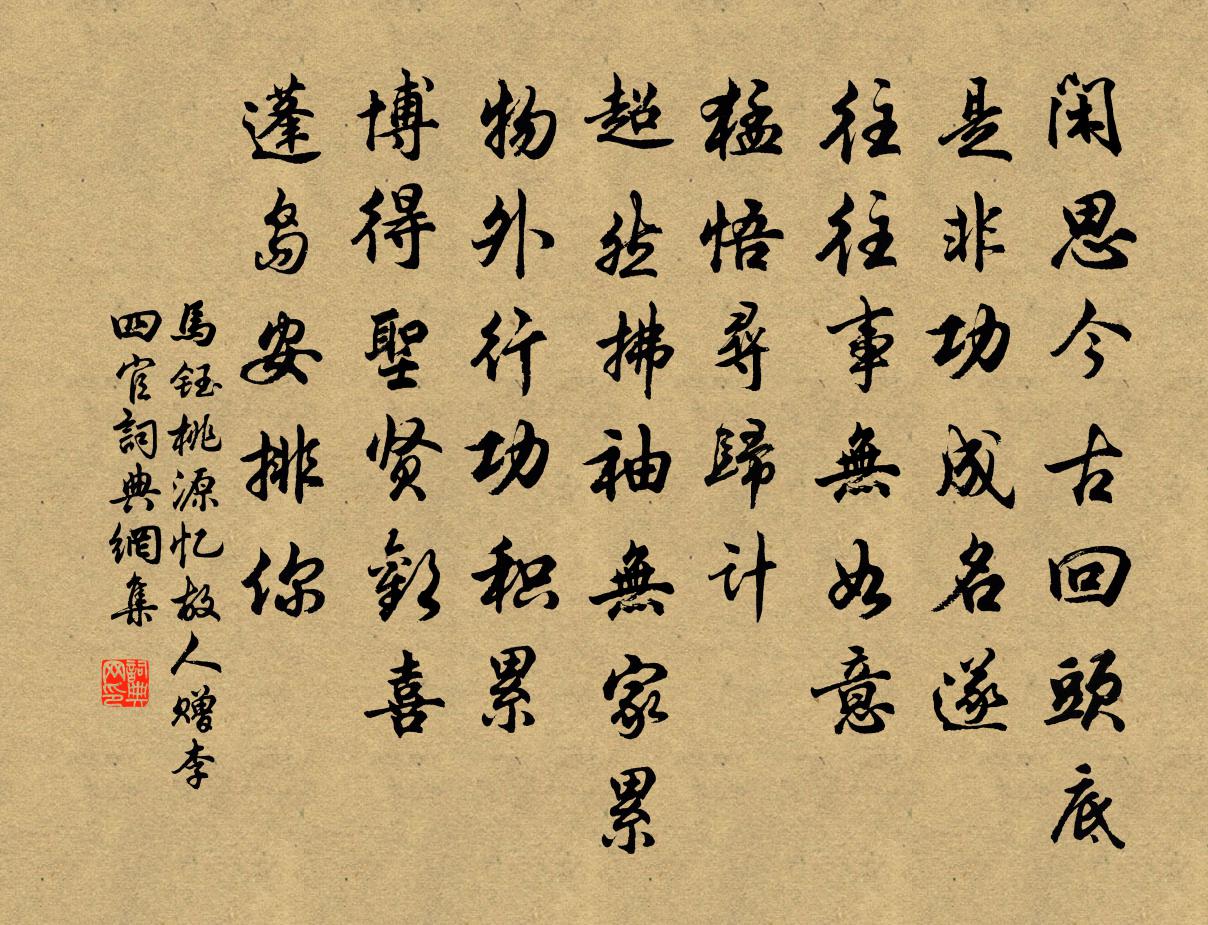 闲思今古回頭底
是非功成名遂
往往事無如意
猛悟尋歸计
超然拂袖無家累
物外行功积累
博得聖贤歡喜
蓬岛安排你
馬钰桃源忆故人赠李
四官詞典網集
詞典网印